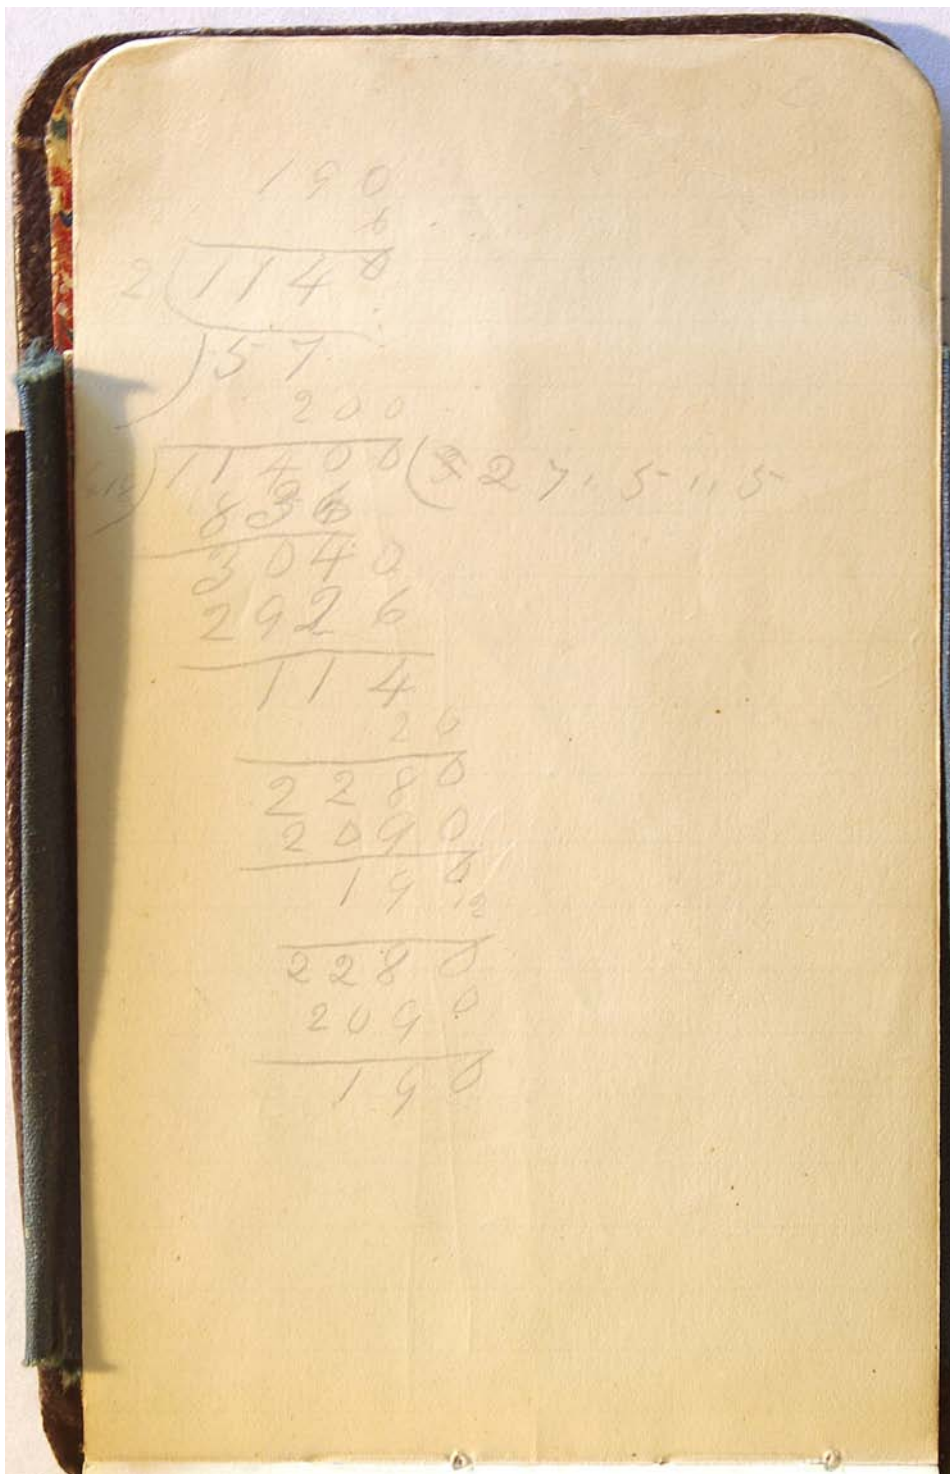 190
6
2 1140
57
200
11400 ( 27 . 5 .. 5
836
3040
2926
114
20
2280
2090
190
12
2280
2090
190